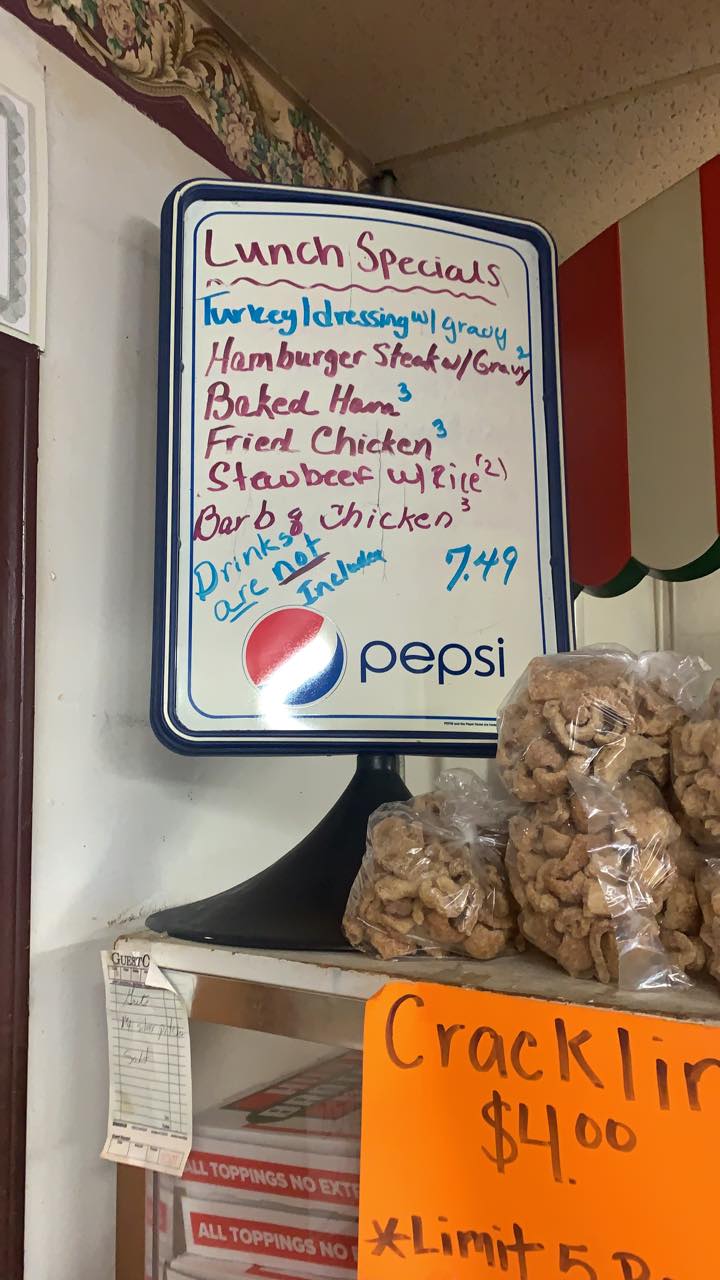 Lunch Specials
Turkey/dressing w/ gravy
Hamburger Steak w/Gravy 2
Baked Ham 3
Fried Chicken 3
Stewbeef w/ Rice (2)
Bar b q Chicken 3
Drinks
are not
Included
7.49
pepsi
GUESTC
Salt
Cracklin
$4.00
*Limit 5
ALL TOPPINGS NO EXTR
ALL TOPPINGS NO